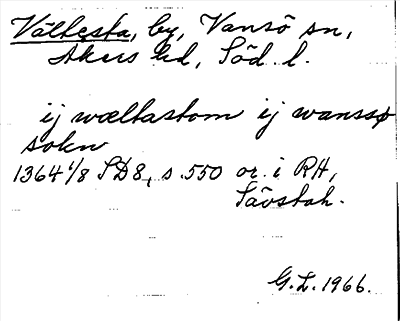 Vältesta, by, Vansö sn,
Åkers hd, Söd. l.
ij wæltastom ij wanssø
sokn
1364 1/8 SD8, s. 550 or. i RH,
Sävstah.
G.L. 1966.